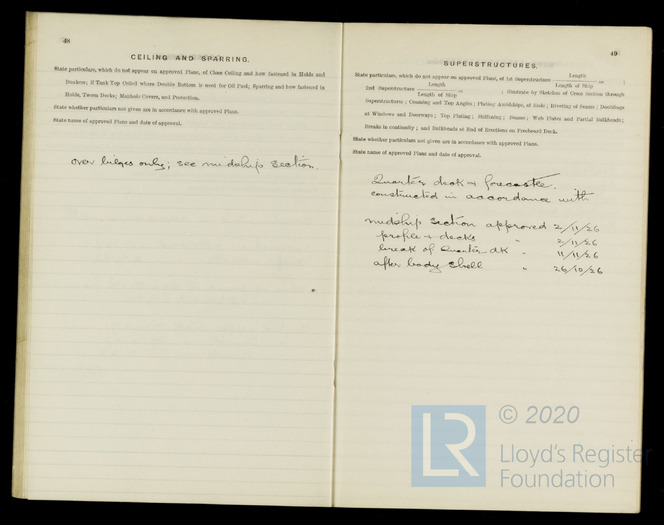 48
CEILING AND SPARRING.
State particulars, which do not appear on approved Plans, of Close Ceiling and how fastened in Holds and
Bunkers; if Tank Top Ceiled where Double Bottom is used for Oil Fuel; Sparring and how fastened in
Holds, 'Tween Decks; Manhole Covers, and Protection.
State whether particulars not given are in accordance with approved Plans.
State name of approved Plans and date of approval.
over bilges only; see midship section.
49
SUPERSTRUCTURES.
State particulars, which do not appear on approved Plans, of 1st Superstructure Length / Length of Ship = ;
2nd Superstructure Length / Length of Ship = ; illustrate by Sketches of Cross section through
Superstructures; Coaming and Top Angles; Plating Amidships, at Ends; Riveting of Seams; Doublings
at Windows and Doorways; Top Plating; Stiffening; Beams; Web Plates and Partial Bulkheads;
Breaks in continuity; and Bulkheads at End of Erections on Freeboard Deck.
State whether particulars not given are in accordance with approved Plans.
State name of approved Plans and date of approval.
Quarter deck & forecastle.
constructed in accordance with
midship section approved 2/11/26
profile & decks " 2/11/26
break of Quarter dk " 11/11/26
after body shell " 26/10/26
LR © 2020
Lloyd's Register
Foundation